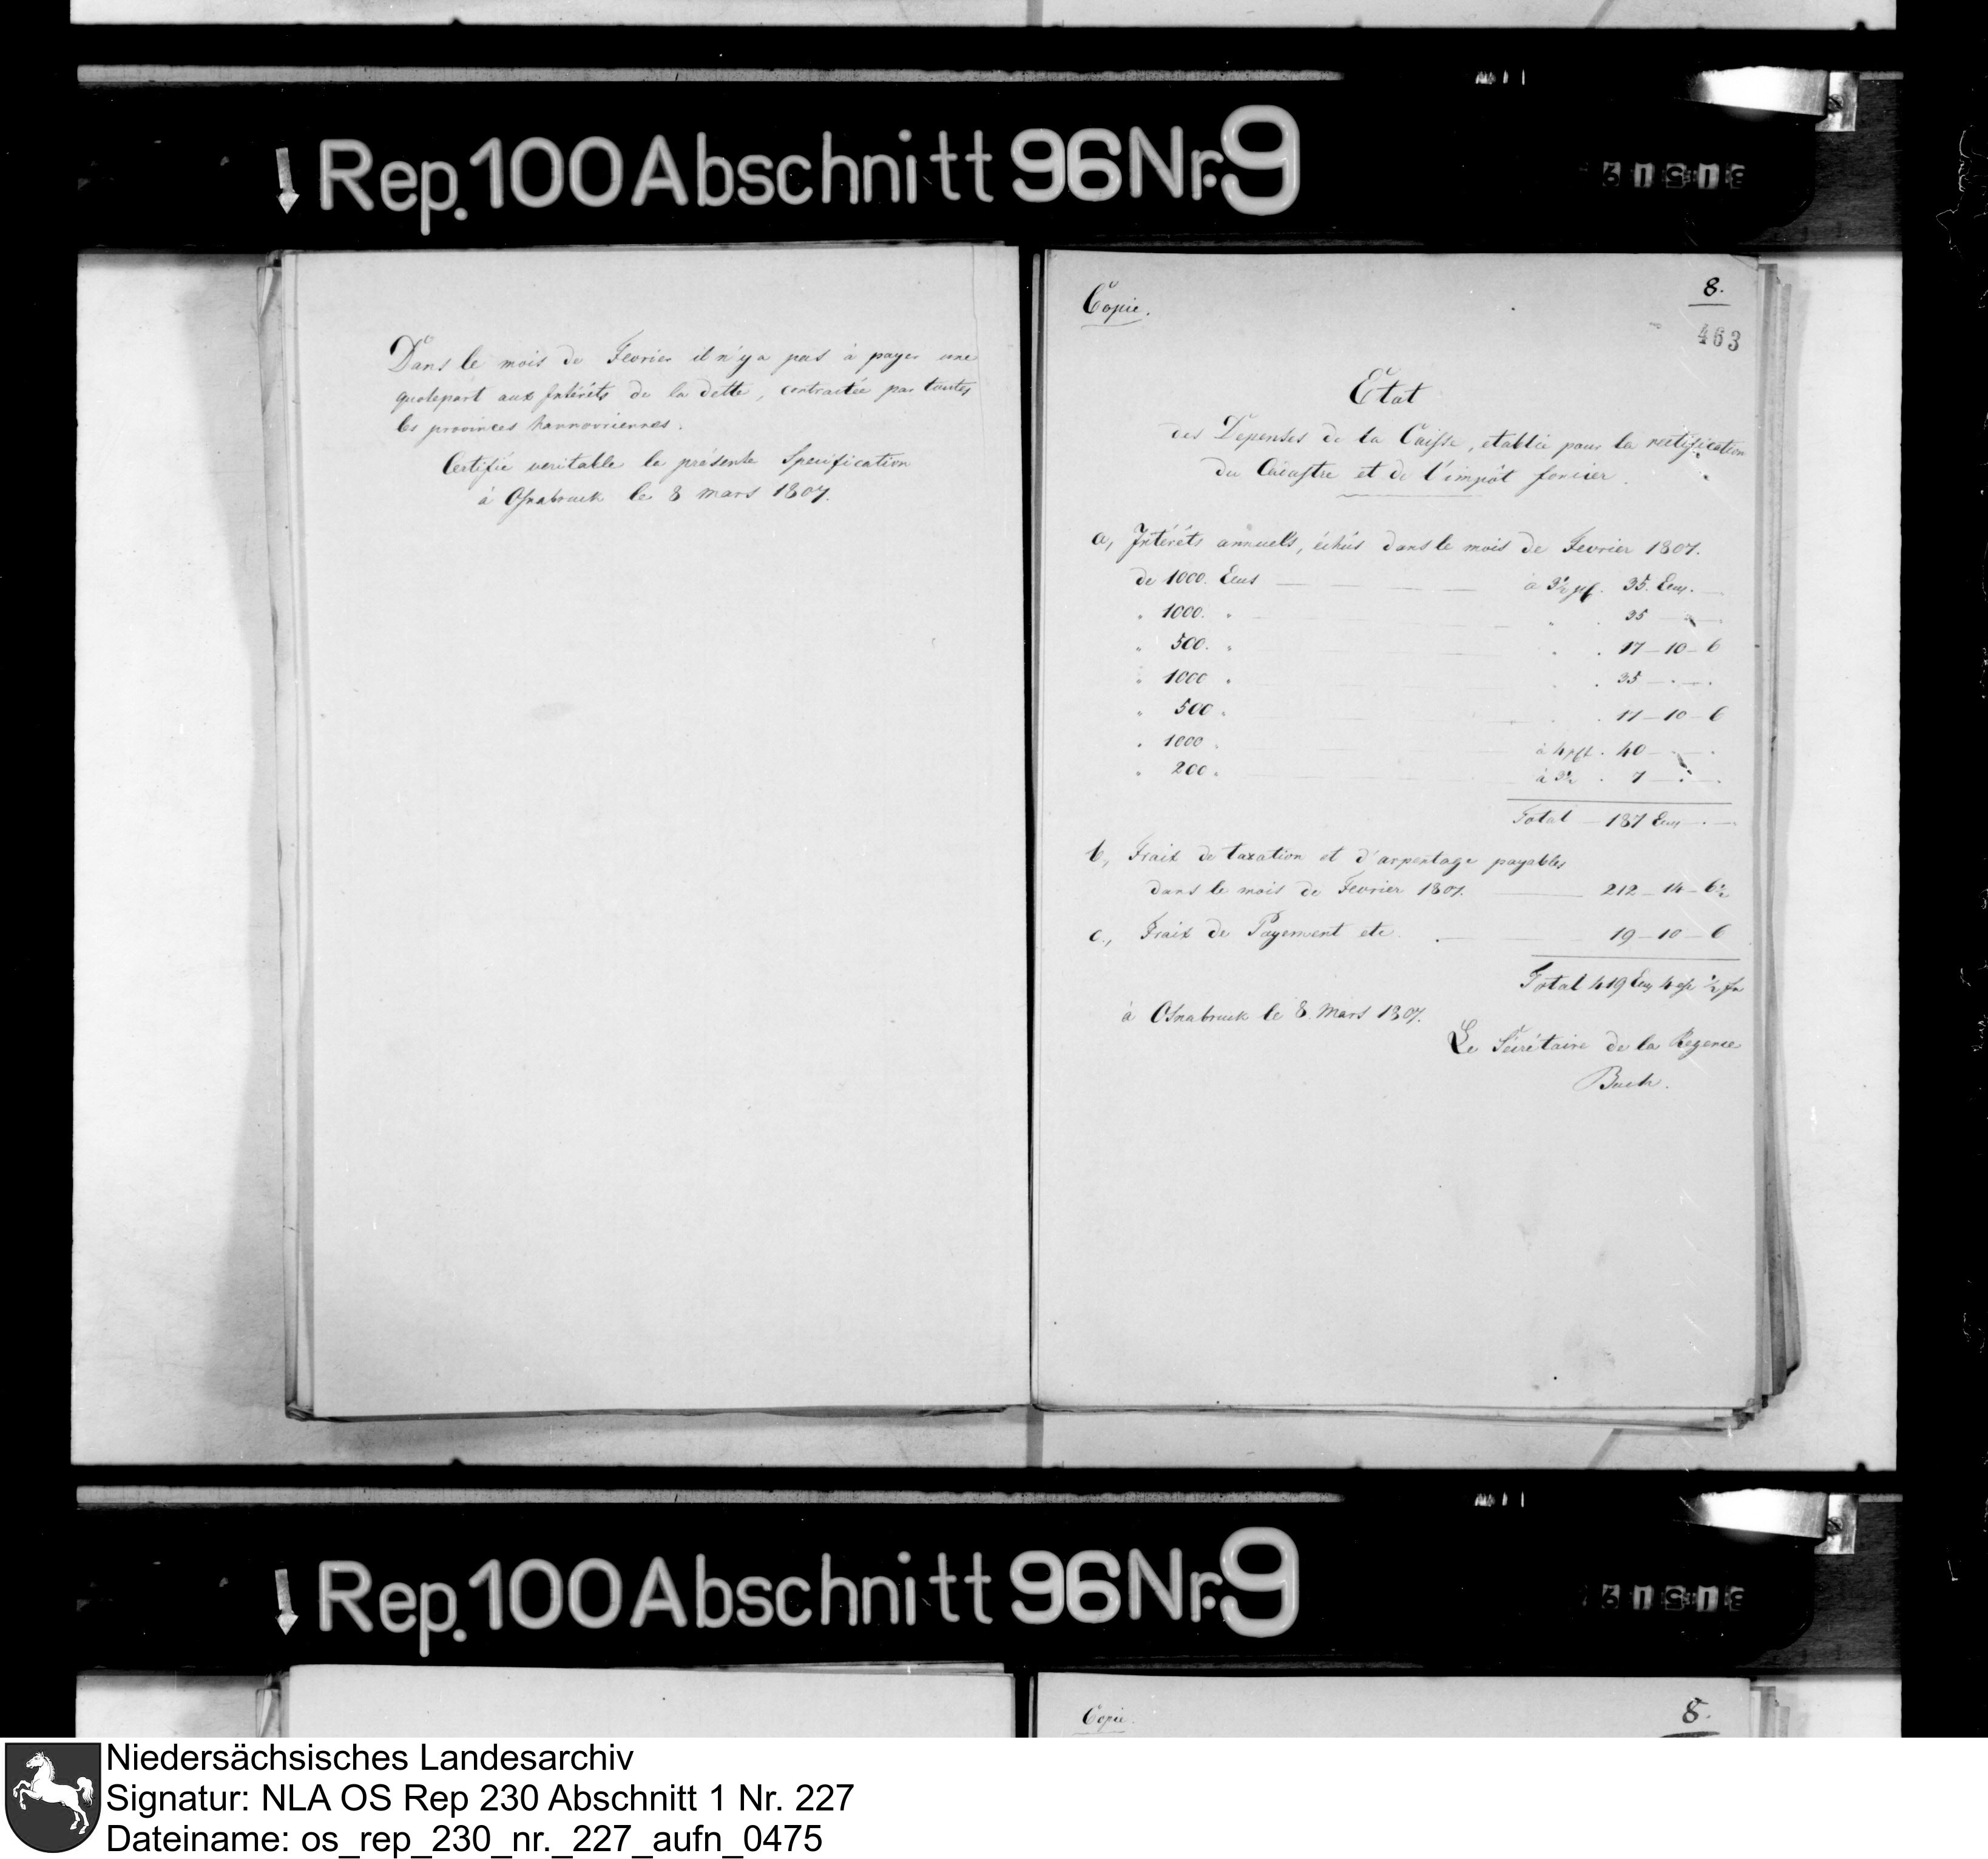 Rep. 100 Abschnitt 96 Nr. 9
Dans le mois de Fevrier il n'y a pas à payer une
quotepart aux Intérêts de la dette, contractée par toutes
les provinces hannovriennes.
Certifié veritable la présente Specification
à Osnabruck le 8 mars 1807.
Copie.
8.
463
Etat
des Depenses de la Caisse, etablie pour la rectification
du Cadastre et de l'impôt foncier.
a, Intérêts annuels, échûs dans le mois de Fevrier 1807.
de 1000. Ecus — à 3½ pf. 35. Ecus. —
" 1000. " " . 35 — . —
" 500. " " . 17 – 10 – 6
" 1000 " " . 35 — . —
" 500 " " . 17 – 10 – 6
" 1000 " à 4 pf. 40 — . —
" 200 " à 3½ . 7 — . —
Total — 187 Ecus — . —
b, Frais de taxation et d'arpentage payables
dans le mois de Fevrier 1807. — 212 – 14 – 6½
c., Frais de Payement etc. — 19 – 10 – 6
Total 419 Ecus 4 ½
à Osnabruck le 8. Mars 1807.
Le Sécrétaire de la Regence
Buch.
Rep. 100 Abschnitt 96 Nr. 9
Copie.
8.
Niedersächsisches Landesarchiv
Signatur: NLA OS Rep 230 Abschnitt 1 Nr. 227
Dateiname: os_rep_230_nr._227_aufn_0475